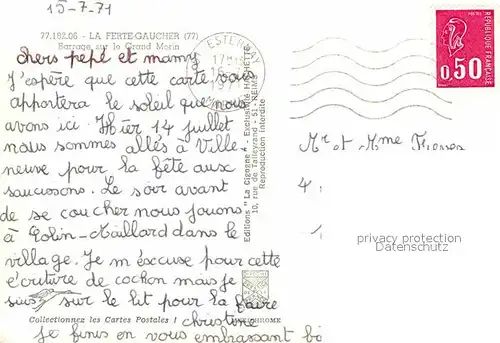 15-7-71
77.182.06 - LA FERTE-GAUCHER (77)
Barrage sur le Grand Morin
chers pepé et mamy
J'espère que cette carte vous
apportera le soleil que nous
avons ici. Hier 14 juillet
nous sommes allés à Ville
neuve pour la fête aux
saucissons. Le soir avant
de se coucher nous jouons
à Colin-Maillard dans le
village. Je m'excuse pour cette
écriture de cochon mais je
suis sur le lit pour la faire
christine
Je finis en vous embrassant
Collectionnez les Cartes Postales !
Editions "La Cigogne" - Exclusivité HACHETTE
10, rue de Talleyrand - 51 - REIMS
Reproduction interdite
ESTERNAY
0,50
REPUBLIQUE FRANCAISE
Mr et Mme
privacy protection
Datenschutz